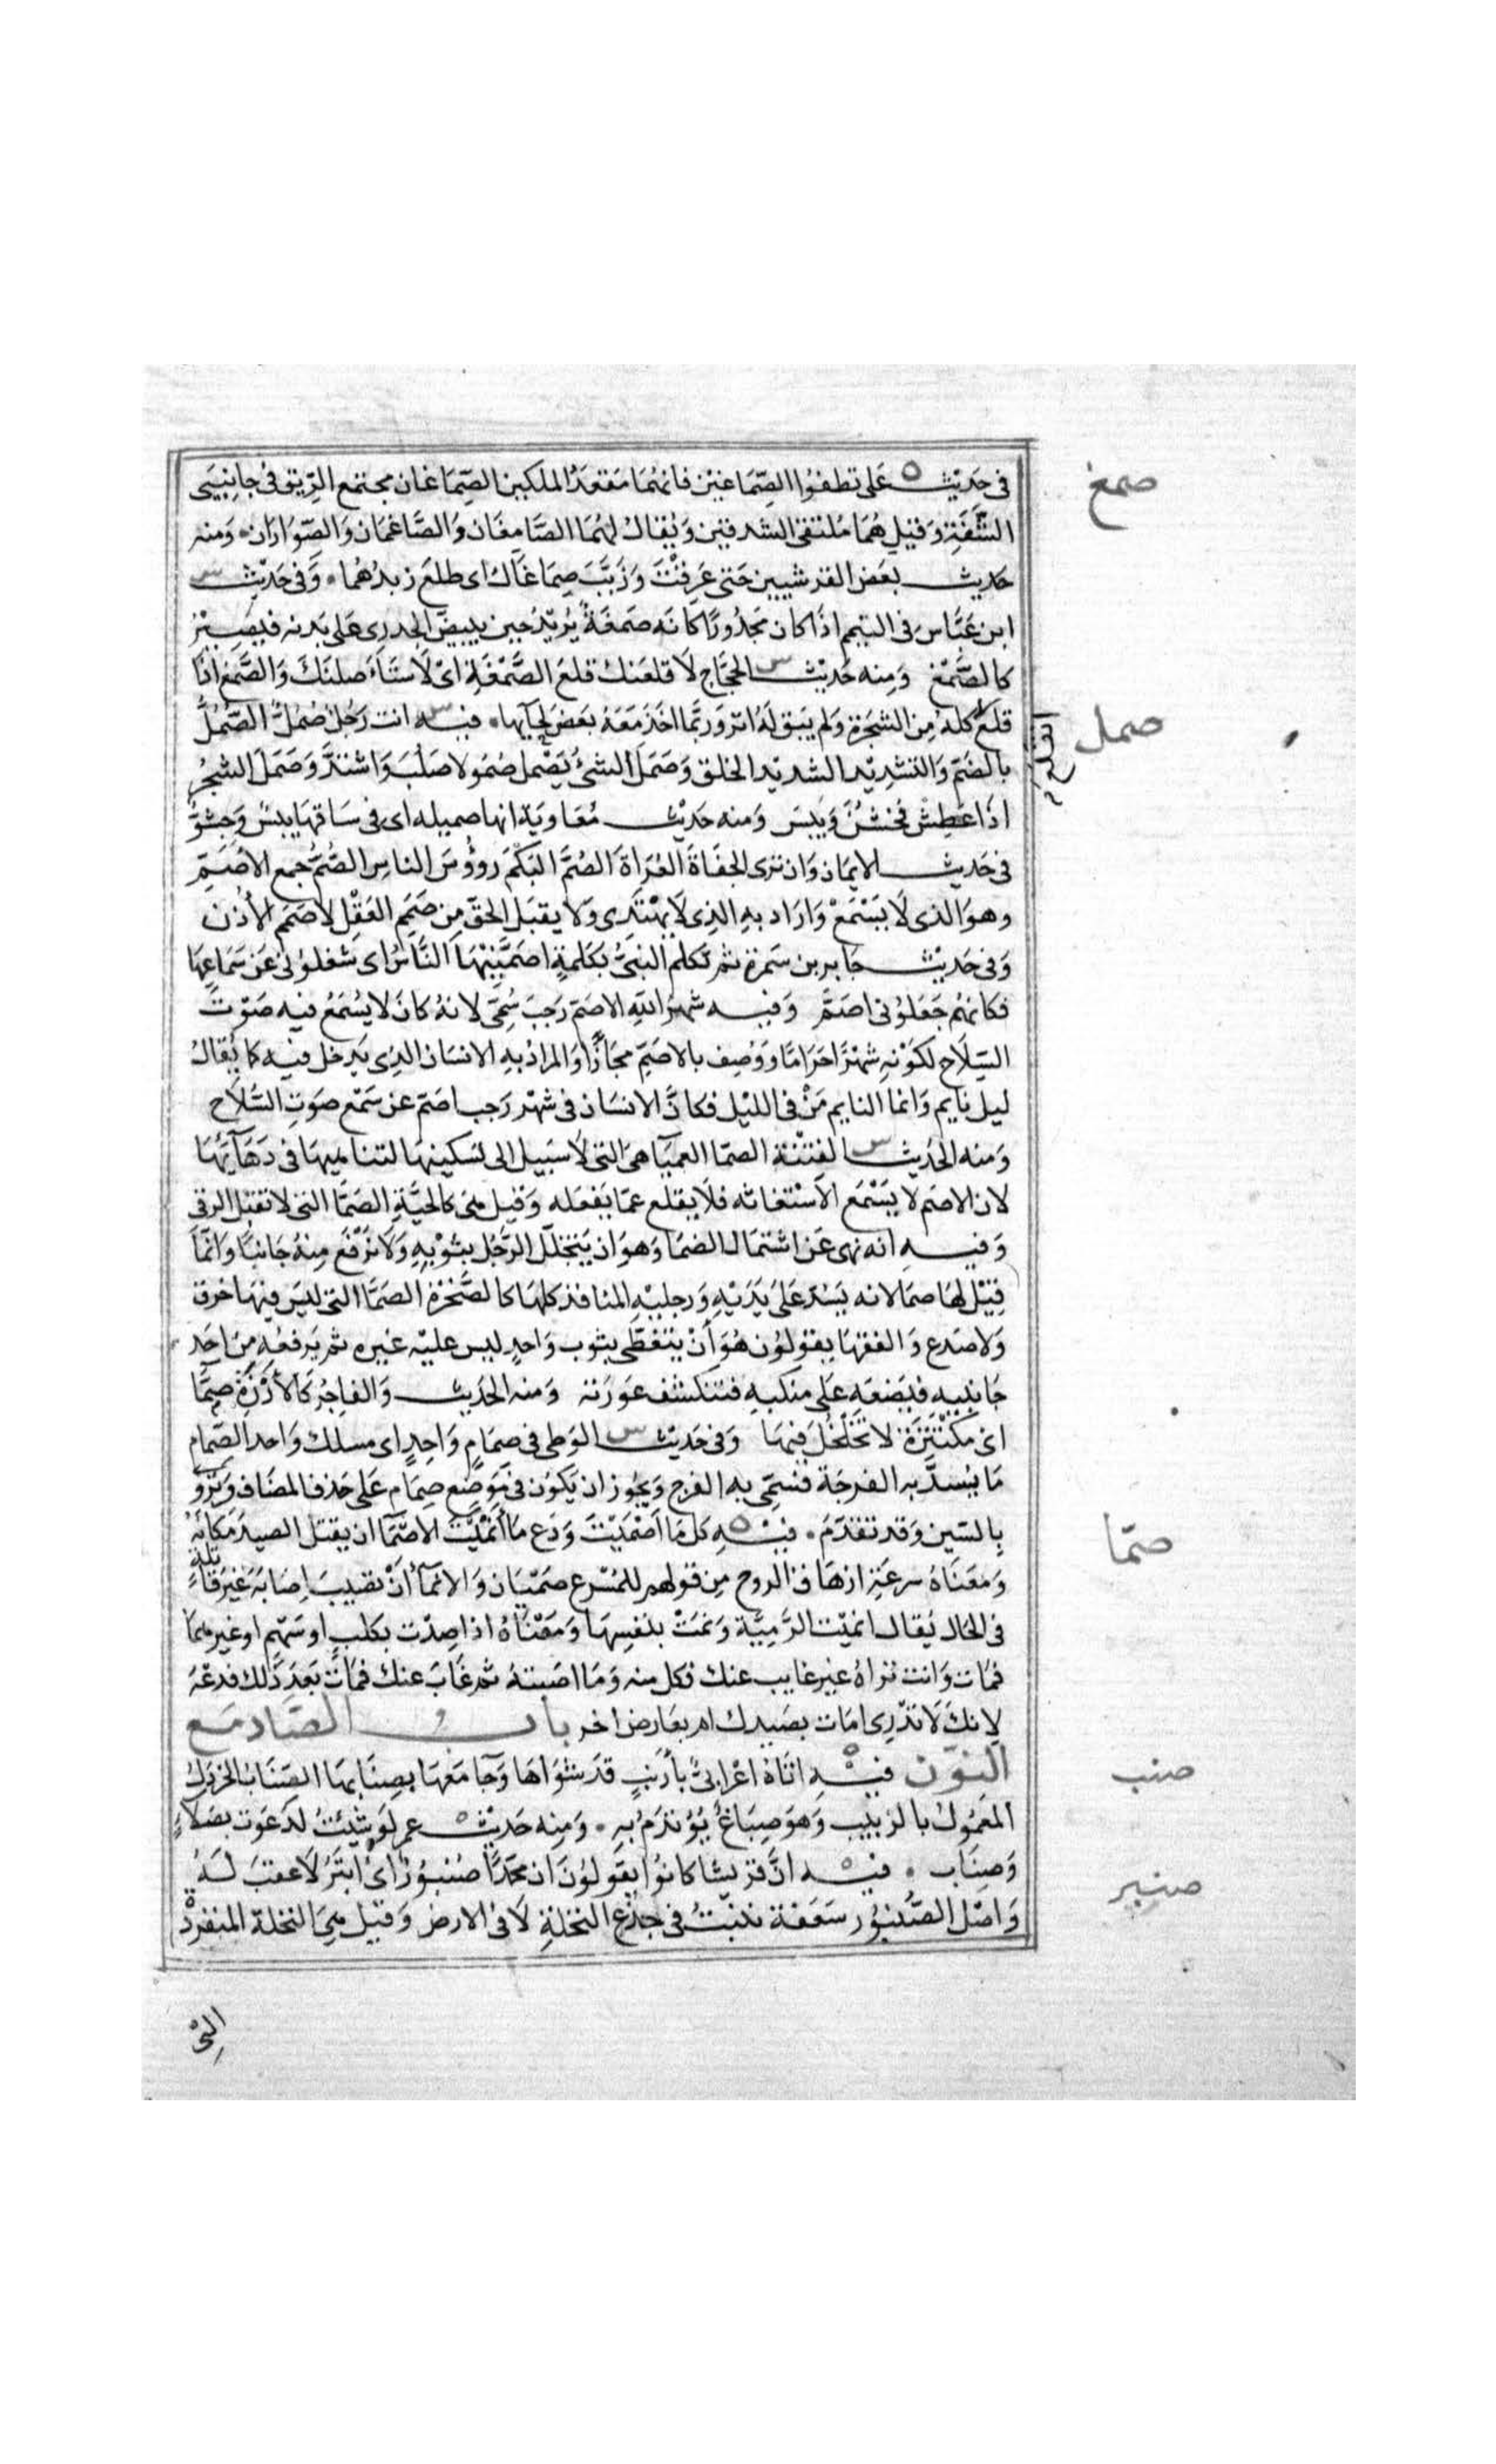 صمغ
في حديث ه على نظفوا الصماغين فانهما مقعد الملكين الصماغان مجتمع الريق في جانبي
الشفة وقيل هما ملتقى الشدقين ويقال لهما الصامغان والصاغمان والصواران ومنه
حديث بعض القرشيين حتى عرقت وزبب صماغاك اى طلع زبدهما وفي حديث س
ابن عباس في اليتيم اذا كان مجدورا كانه صمغة يريد حين يبيض الجدرى على بدنه فيصير
كالصمغ ومنه حديث س الحجاج لاقلعنك قلع الصمغة اى لاستاصلنك والصمغ اذا
صمل
قلع كله من الشجرة ولم يبق له اثر وربما اخذ معه بعض لحايها فيه س انت رجل صمل الصمل
بالضم والتشديد الشديد الخلق وصمل الشئ يصمل صمولا صلب واشتد وصمل الشجر
اذا عطش فخشن ويبس ومنه حديث معاوية انها صميله اى في ساقها يبس وخشو
في حديث الايمان وان ترى الحفاة العراة الصم البكم رووس الناس الصم جمع الاصم
وهو الذى لا يسمع واراد به الذى لا يهتدى ولا يقبل الحق من صمم العقل لا صمم الأذن
وفي حديث جابر بن سمرة ثم تكلم النبى بكلمة اصمنيها الناس اى شغلونى عن سماعها
فكانهم جعلونى اصم وفيه شهر الله الاصم رجب سمى لانه كان لا يسمع فيه صوت
السلاح لكونه شهرا حراما ووصف بالاصم مجازا والمراد به الانسان الذى يدخل فيه كما يقال
ليل نايم وانما النايم من في الليل فكان الانسان في شهر رجب اصم عن سمع صوت السلاح
ومنه الحديث س الفتنة الصما العميا هى التى لا سبيل الى تسكينها لتناهيها في دهايها
لان الاصم لا يسمع الاستغاثه فلا يقلع عما يفعله وقيل هى كالحية الصما التى لا تقبل الرقى
وفيه انه نهى عن اشتمال الصما وهو ان يتجلل الرجل بثوبه ولا يرفع منه جانبا وانما
قيل لها صما لانه يسد على يديه ورجليه المنافذ كلها كالصخرة الصما التى ليس فيها خرق
ولا صدع والفقها يقولون هو أن يتغطى بثوب واحد ليس عليه غيره ثم يرفعه من احد
جانبيه فيضعه على منكبه فتنكشف عورته ومنه الحديث والفاجر كالأرزة صما
اى مكتنزة لا تخلخل فيها وفي حديث س الوطى في صمام واحد اى مسلك واحد الصمام
ما يسد به الفرجة فسمى به الفرج ويجوز ان يكون في موضع صمام على حذف المضاف ويرو
صما
بالسين وقد تقدم فيه ه كل ما اصميت ودع ما أنميت الاصما ان يقتل الصيد مكانه
ومعناه سرعة ازهاق الروح من قولهم للمسرع صميان والانمآ أن تصيب اصابة غير قاتلة
في الحال يقال انميت الرمية ونمت بنفسها ومعناه اذا صدت بكلب او سهم او غيرهما
فمات وانت تراه غير غايب عنك فكل منه وما اصبته ثم غاب عنك فمات بعد ذلك فدعه
لانك لا تدرى امات بصيدك ام بعارض اخر باب الصاد مع
صنب
النون فيه ه اتاه اعرابى بأرنب قد شواها وجآ معها بصنابها الصناب الخردل
المعمول بالزبيب وهو صباغ يؤتدم به ومنه حديث ه عمر لو شئت لدعوت بصلاء
صنبر
وصناب فيه ه ان قريشا كانوا يقولون ان محمدا صنبور اى ابتر لا عقب له
واصل الصنبور سعفة تنبت في جذع النخلة لا في الارض وقيل هى النخلة المنفردة
التى